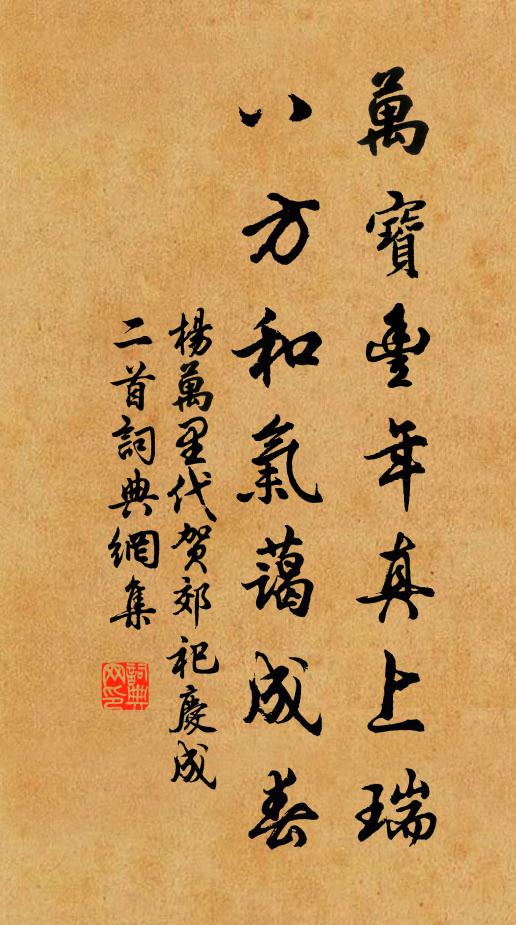 萬寶豊年真上瑞
八方和氣藹成春
楊萬里代贺郊祀慶成
二首詞典網集
詞典网印